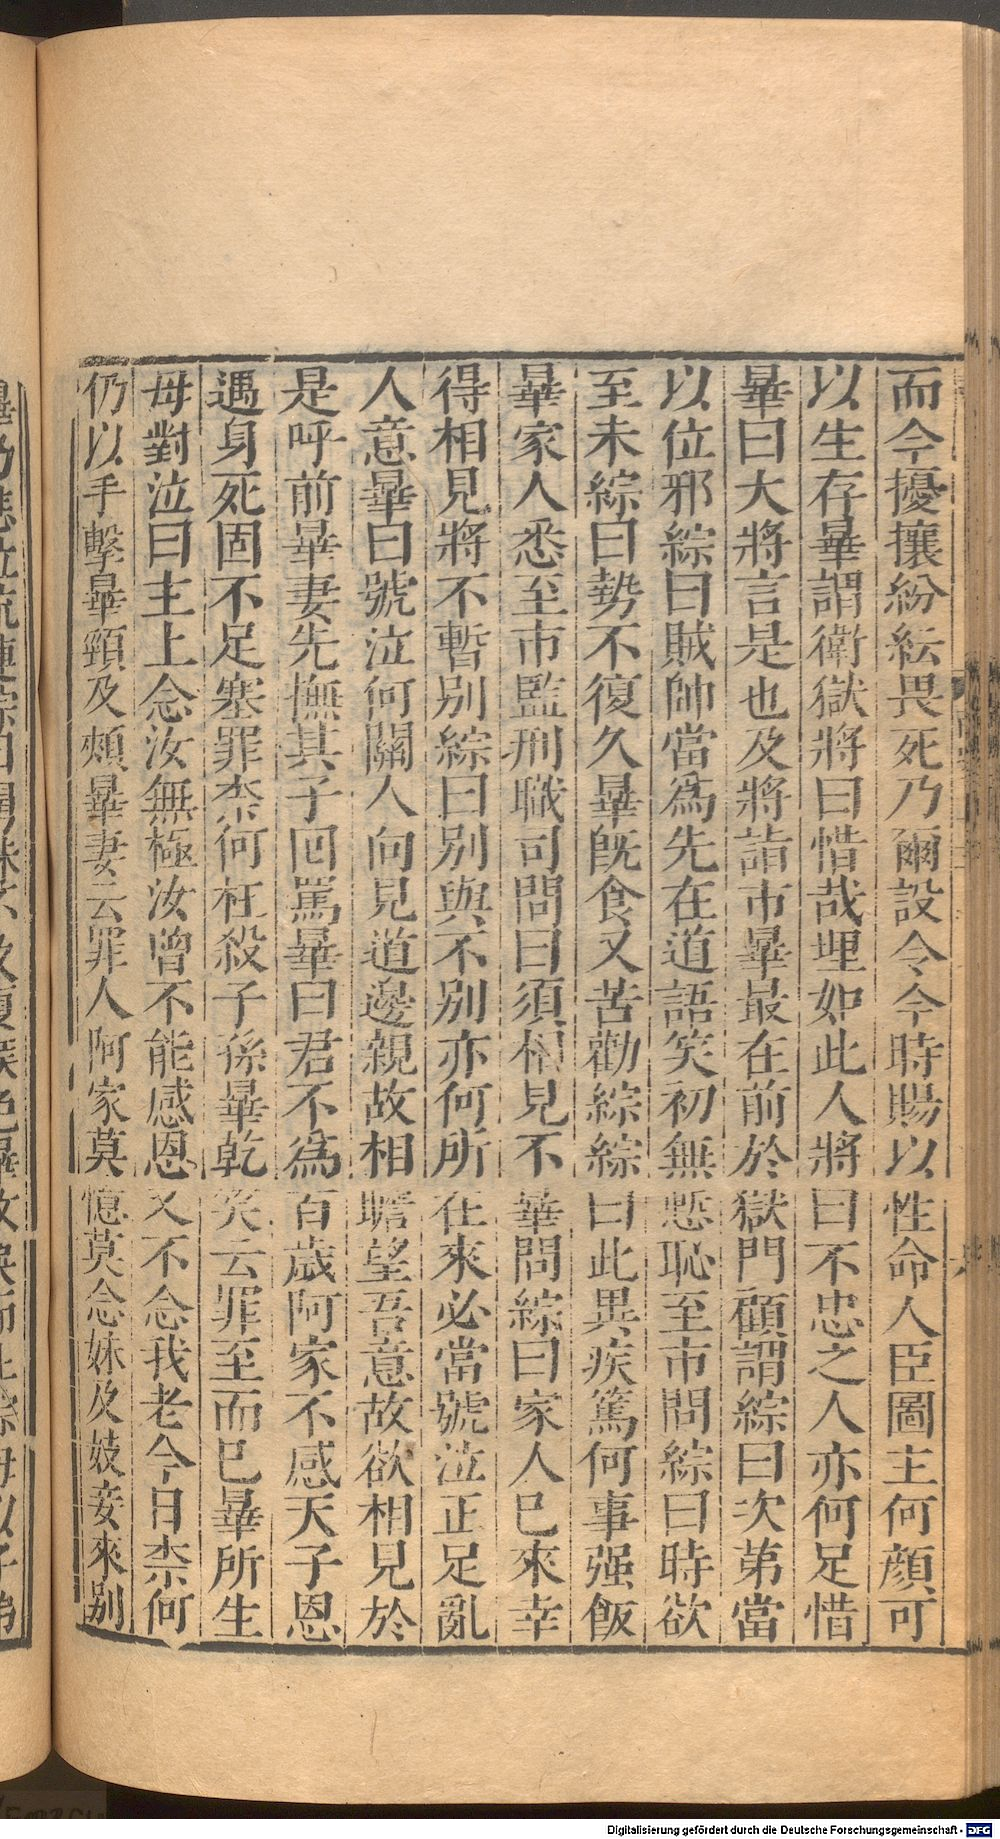 而今擾攘紛紜畏死乃爾設令今時賜以性命人臣圖主何顔可
以生存曅謂衛獄將曰惜哉埋如此人將曰不忠之人亦何足惜
曅曰大將言是也及將詣市曅最在前於獄門顧謂綜曰次第當
以位邪綜曰賊帥當爲先在道語笑初無慙恥至市問綜曰時欲
至未綜曰勢不復久曅旣食又苦勸綜綜曰此異疾篤何事强飯
曅家人悉至市監刑職司問曰須相見不曅問綜曰家人已來幸
得相見將不暫別綜曰別與不別亦何所在來必當號泣正足亂
人意曅曰號泣何關人向見道邊親故相瞻望吾意故欲相見於
是呼前曅妻先撫其子回罵曅曰君不爲百歲阿家不感天子恩
遇身死固不足塞罪柰何枉殺子孫曅乾笑云罪至而已曅所生
母對泣曰主上念汝無極汝曾不能感恩又不念我老今日柰何
仍以手擊曅頸及頰曅妻云罪人阿家莫憶莫念妹及妓妾來別
Digitalisierung gefördert durch die Deutsche Forschungsgemeinschaft - DFG